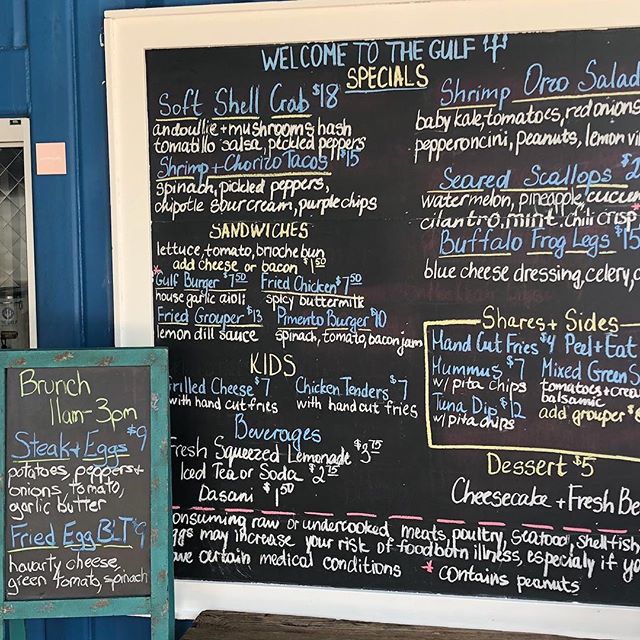 WELCOME TO THE GULF
SPECIALS
Soft Shell Crab $18
andoullie + mushrooms hash
tomatillo salsa, pickled peppers
Shrimp + Chorizo Tacos $15
spinach, pickled peppers,
chipotle sour cream, purple chips
SANDWICHES
lettuce, tomato, brioche bun
add cheese or bacon $1.50
*Gulf Burger $7.50 Fried Chicken $7.50
house garlic aioli spicy buttermilk
Fried Grouper $13 Pimento Burger $10
lemon dill sauce spinach, tomato, bacon jam
KIDS
Grilled Cheese $7 Chicken Tenders $7
with hand cut fries with hand cut fries
Beverages
Fresh Squeezed Lemonade $3.75
Iced Tea or Soda $2.75
Dasani $1.50
Shrimp Orzo Salad
baby kale, tomatoes, red onions
pepperoncini, peanuts, lemon vi
Seared Scallops $2
watermelon, pineapple, cucum
cilantro, mint, chili crisp
Buffalo Frog Legs $15
blue cheese dressing, celery, c
Shares + Sides
Hand Cut Fries $4 Peel + Eat
Hummus $7 Mixed Green S
w/ pita chips tomatoes + crea
balsamic
Tuna Dip $12 add grouper $
w/ pita chips
Dessert $5
Cheesecake + Fresh Be
consuming raw or undercooked meats, poultry, seafood, shellfish
eggs may increase your risk of foodborn illness, especialy if yo
have certain medical conditions * contains peanuts
Brunch
11am-3pm
Steak + Eggs $9
potatoes, peppers +
onions, tomato,
garlic butter
Fried Egg BLT $9
havarty cheese,
green tomato, spinach